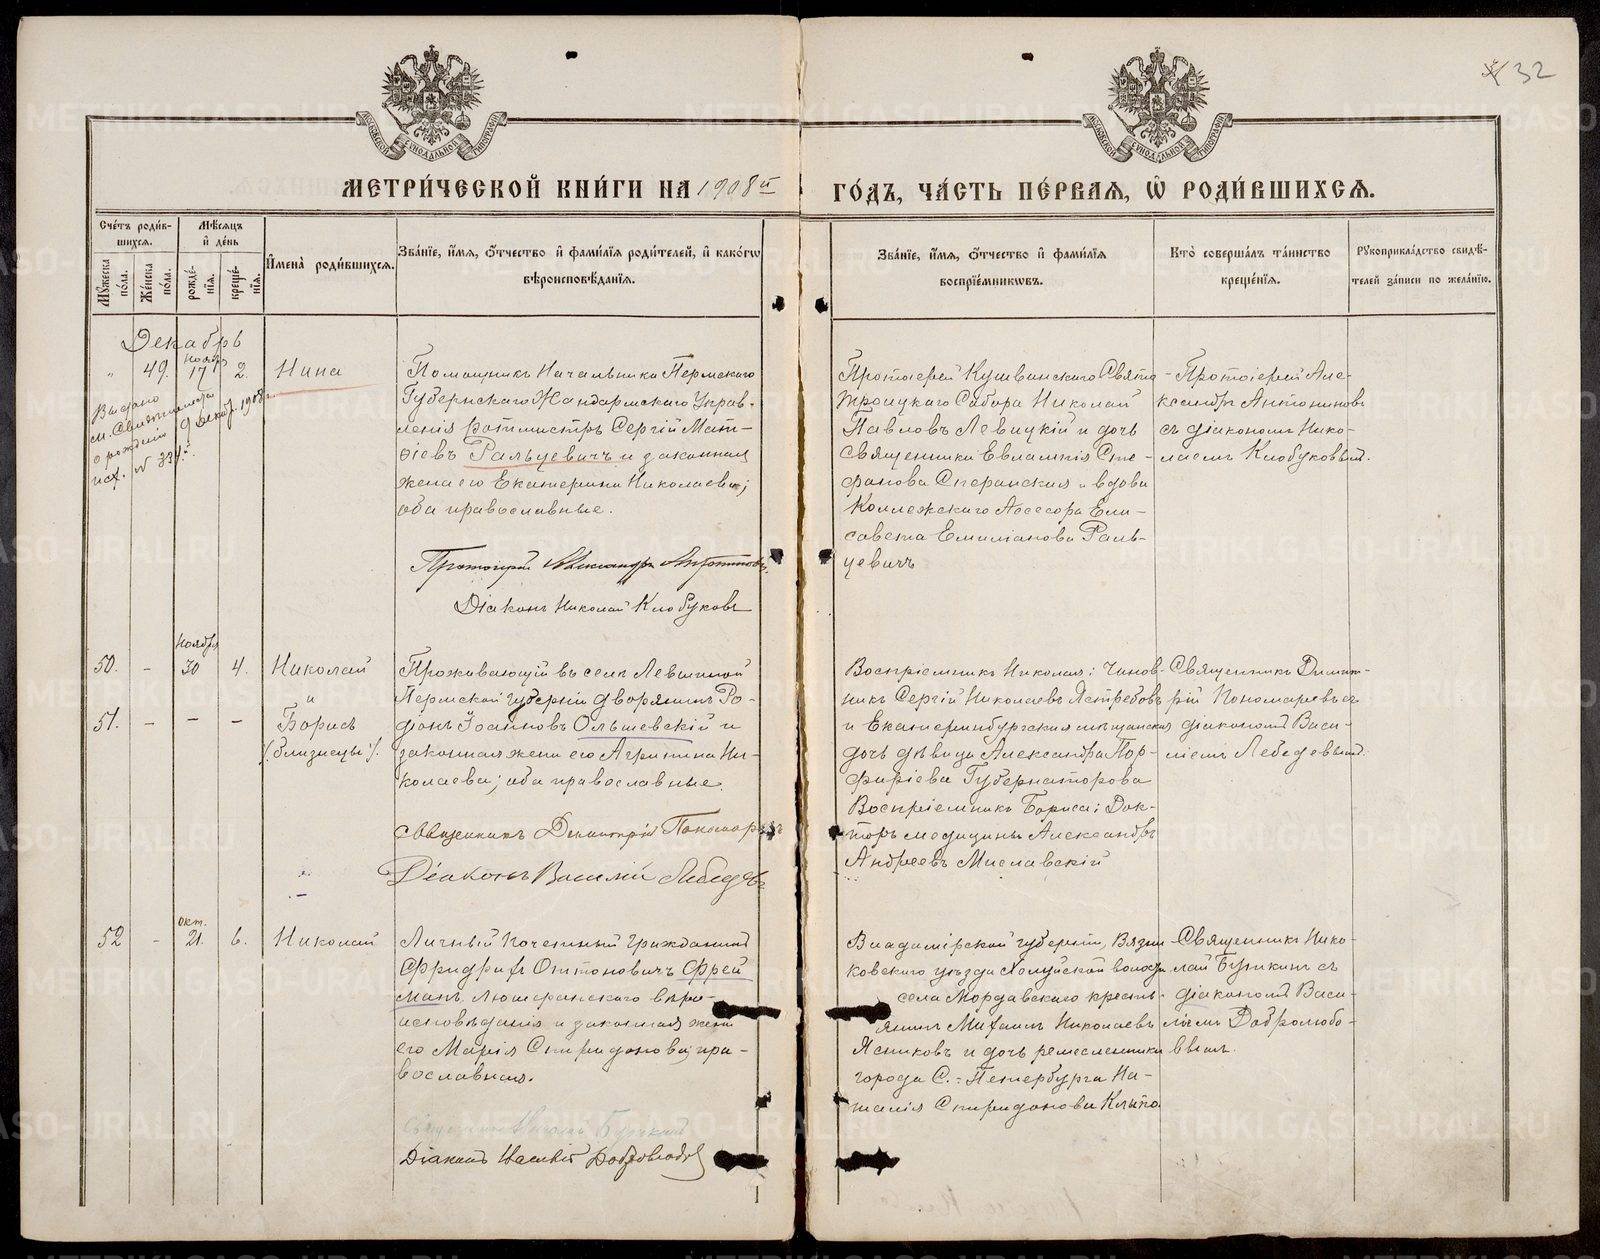 32
МЕТРИ́ЧЕСКОЙ КНИ́ГИ НА 1908й ГО́ДЪ, ЧА́СТЬ ПЕ́РВАЯ, Ѿ РОДИ́ВШИХСЯ.
Сче́тъ роди́вшихся.
Му́жеска по́ла.
Же́нска по́ла.
Мѣ́сяцъ и́ де́нь
рожде́нія.
креще́нія.
И́мена̀ роди́вшихся.
Зва́ніе, и́мя, о́тчество и́ фами́лія роди́телей, и́ како́гѡ
вѣроисповѣ́данія.
Зва́ніе, и́мя, о́тчество и́ фами́лія
воспріе́мниковъ.
Кто̀ соверша́лъ та́инство
креще́нія.
Рукоприкла́дство свидѣ́-
телей за́писи по жела́нію.
Декабрь
" 49. Нояб. 17 2. Нина
Выдано
м. Свидетельство
о рожденіи 9 Декаб. 1908 г.
исх. № 334.
Помощникъ Начальника Пермскаго
Губернскаго Жандармскаго Управ-
ленія Ротмистръ Сергій Мат-
ѳіевъ Ральцевичъ и законная
жена его Екатерина Николаева;
оба православные.
Протоіерей Александръ Антониновъ
Діаконъ Николай Клобуковъ
Протоіерей Кушвинскаго Свято-
троицкаго Собора Николай
Павловъ Левицкій и дочь
священника Евлампія Сте-
фанова Сперанская и вдова
Коллежскаго Ассесора Ели-
савета Емиліанова Раль-
цевичъ
Протоіерей Але-
ксандръ Антониновъ
съ діакономъ Нико-
лаемъ Клобуковымъ.
50. - Ноября 30 4. Николай
и
51. - - - Борисъ
(близнецы).
Проживающій въ селѣ Левшиной
Пермской губерніи дворянинъ Ро-
діонъ Іоанновъ Ольшевскій и
законная жена его Агрипина Ни-
колаева; оба православные.
Священникъ Димитрій Пономаревъ
Діаконъ Василій Лебедевъ
Воспріемникъ Николая: Чинов-
никъ Сергій Николаевъ Ястребовъ
и Екатеринбургская мѣщанская
дочь дѣвица Александра Пор-
фиріева Губернаторова
Воспріемникъ Бориса: Док-
торъ медицины Александръ
Андреевъ Миславскій
Священникъ Димит-
рій Пономаревъ съ
діакономъ Васи-
ліемъ Лебедевымъ.
52 - Окт. 21. 6. Николай
Личный Почетный Гражданинъ
Фридрихъ Оттоновичъ Фрей
манъ Лютеранскаго вѣро-
исповѣданія и законная жена
его Марія Спиридонова, пра-
вославная.
Священникъ Николай Буткинъ
Діаконъ Василій Добролюбовъ
Владимірской губерніи, Вязни-
ковскаго уѣзда Холуйской волости
села Мордавскаго кресть-
янинъ Михаилъ Николаевъ
Ясниковъ и дочь ремесленника
города С.-Петербурга На-
талія Спиридонова Клыпо.
Священникъ Нико-
лай Буткинъ съ
діакономъ Васи-
ліемъ Добролюбо-
вымъ.
METRIKI.GASO-URAL.RU